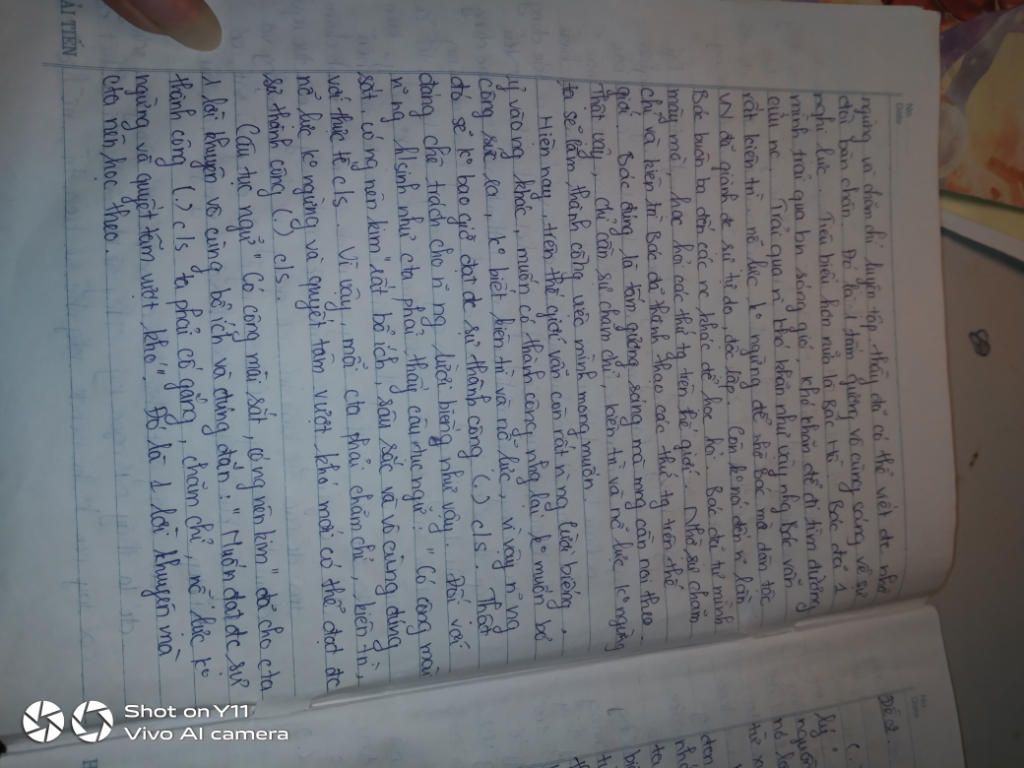 ngừng và chăm chỉ luyện tập thầy đã có thể viết đc nhờ
đôi bàn chân. Đó là 1 tấm gương vô cùng sáng về sự
nghị lực. Tiêu biểu hơn nữa là Bác Hồ. Bác đã 1
mình trải qua bn sóng gió, khó khăn để đi tìm đường
cứu nc. Trải qua n' khó khăn như vậy nhg Bác vẫn
rất kiên trì, nỗ lực ko ngừng để rồi Bác mà dân tộc
VN đã giành đc sự tự do, độc lập. Còn ko nói đến n' lần
Bác buôn ba đến các nc khác để học hỏi. Bác đã tự mình
mày mò, học hỏi các thứ tg trên thế giới. Nhờ sự chăm
chỉ và kiên trì Bác đã thành thạo các thứ tg trên thế
giới. Bác đúng là tấm gương sáng mà mng cần noi theo
Thật vậy, chỉ cần sự chăm chỉ, kiên trì và nỗ lực ko ngừng
ta sẽ làm thành công việc mình mong muốn.
Hiện nay, trên thế giới vẫn còn rất n' ng lười biếng,
ỷ vào ng khác, muốn có thành công nhg lại ko muốn bỏ
công sức ra, ko biết kiên trì và nỗ lực, vì vậy n' ng
đó sẽ ko bao giờ đạt đc sự thành công (.) c/s. Thật
đáng chê trách cho n' ng lười biếng như vậy. Đối với
n' ng h/sinh như cta phải thấy câu tục ngữ: "Có công mài
sắt có ngày nên kim" rất bổ ích, sâu sắc và vô cùng đúng
với thực tế c/s. Vì vậy, mỗi cta phải chăm chỉ, kiên trì,
nỗ lực ko ngừng và quyết tâm vượt khó mới có thể đạt đc
sự thành công (.) c/s.
Câu tục ngữ "Có công mài sắt, có ng nên kim" đã cho cta
1 lời khuyên vô cùng bổ ích và đúng đắn: "Muốn đạt đc sự
thành công (.) c/s ta phải cố gắng, chăm chỉ, nỗ lực ko
ngừng và quyết tâm vượt khó". Đó là 1 lời khuyên mà
cta nên học theo.
ẢI TIẾN
Đề 2:
Shot on Y11
Vivo AI camera